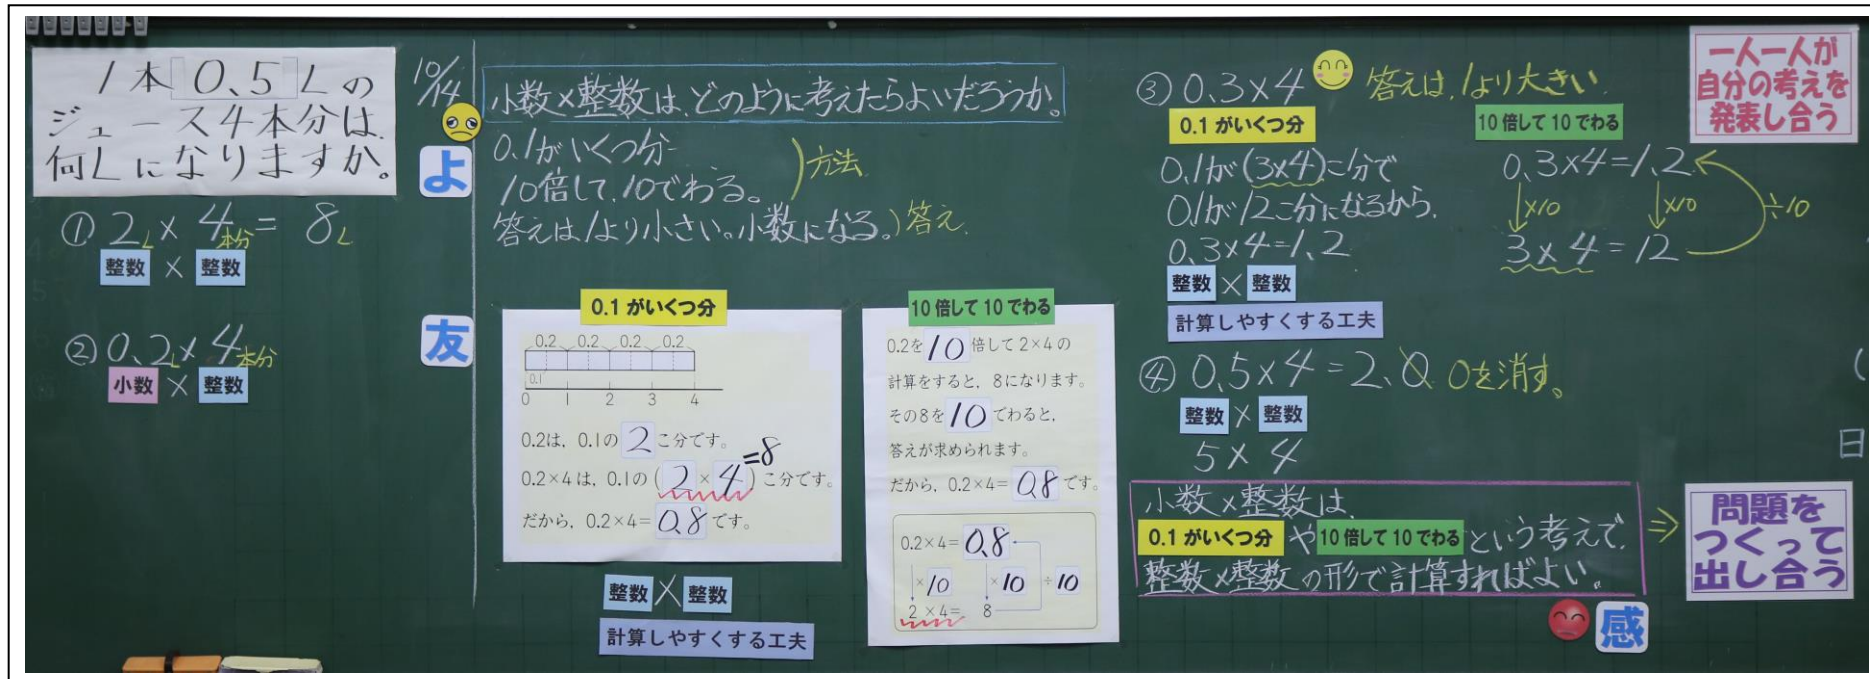 1本0.5Lの
ジュース4本分は、
何Lになりますか。
① 2L × 4本分 = 8L
整数 × 整数
② 0.2L × 4本分
小数 × 整数
10/14
小数×整数は、どのように考えたらよいだろうか。
よ
0.1がいくつ分
10倍して、10でわる。
方法
答えは1より小さい。小数になる。) 答え
友
0.1がいくつ分
0.2 0.2 0.2 0.2
0.1
0 1 2 3 4
0.2は、0.1の 2 こ分です。
=8
0.2×4は、0.1の(2×4)こ分です。
だから、0.2×4=0.8です。
整数 × 整数
計算しやすくする工夫
10倍して10でわる
0.2を10倍して2×4の
計算をすると、8になります。
その8を10でわると、
答えが求められます。
だから、0.2×4=0.8です。
0.2×4=0.8
×10 ×10 ÷10
2×4= 8
③ 0.3×4 答えは、1より大きい。
0.1がいくつ分
0.1が(3×4)こ分で
0.1が12こ分になるから、
0.3×4=1.2
整数 × 整数
計算しやすくする工夫
10倍して10でわる
0.3×4=1.2
×10 ×10 ÷10
3×4=12
④ 0.5×4=2.0 0を消す。
整数 × 整数
5×4
小数×整数は、
0.1がいくつ分 や 10倍して10でわる という考えで、
整数×整数の形で計算すればよい。
⇒
感
一人一人が
自分の考えを
発表し合う
日
問題を
つくって
出し合う